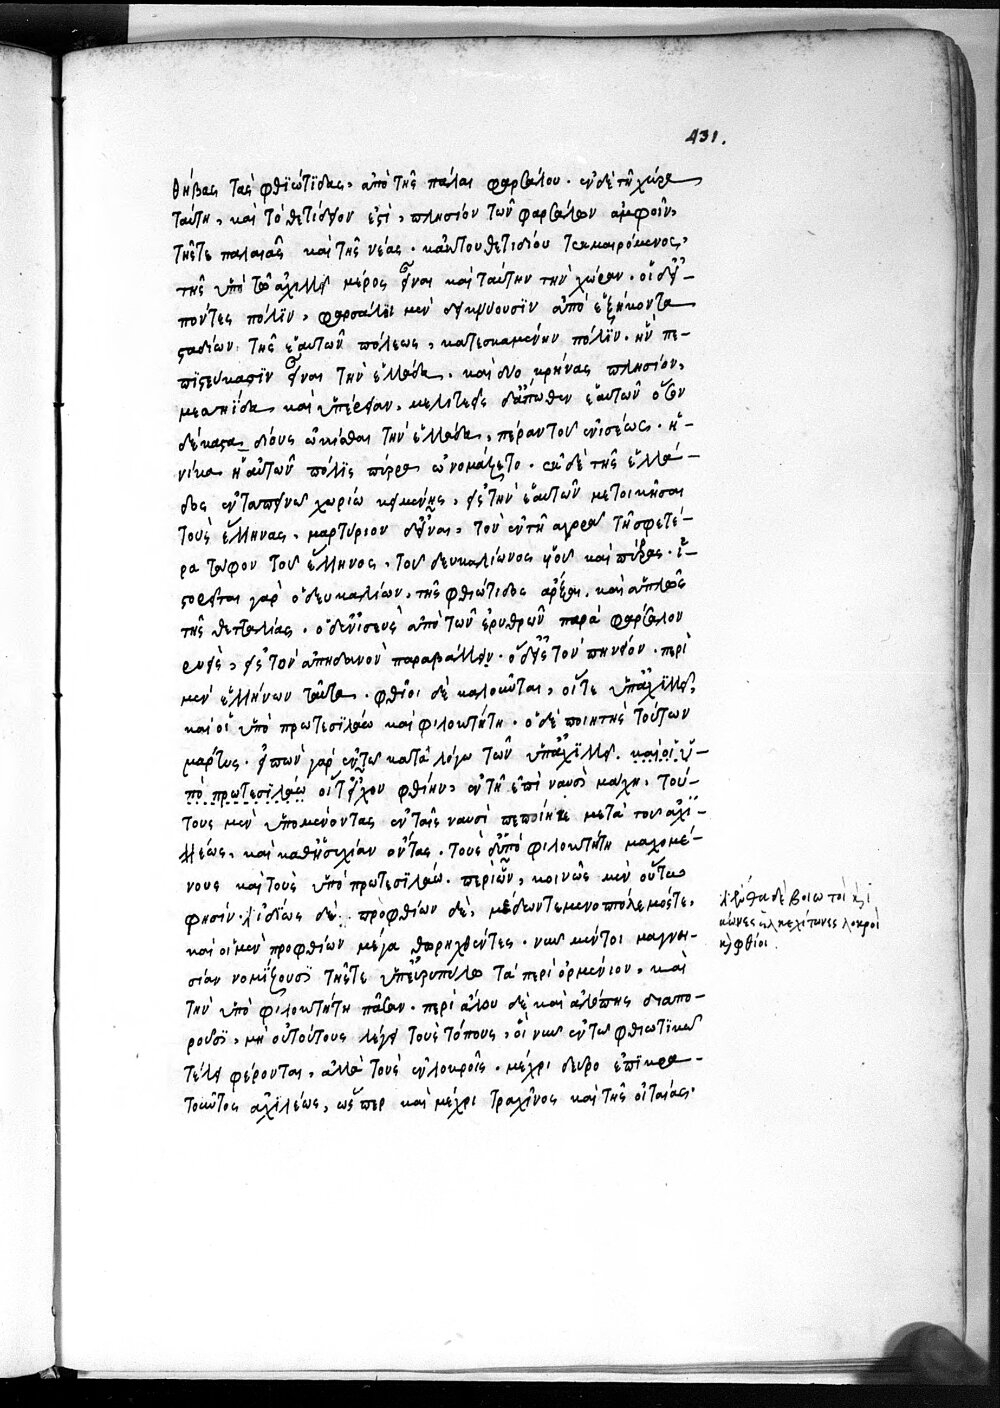 431.
θήβας τὰς φθϊώτϊδας, ἀπὸ τῆς πάλαι φαρσάλου. ἐν δὲ τῆ χώρα
ταύτη, καὶ τὸ θετίδειον ἐςὶ, πλησίον τῶν φαρσάλων ἀμφοῖν,
τῆς τε παλαιᾶς καὶ τῆς νέας. κἀκ τοῦ θετιδίου τεκμαιρόμενος,
τῆς ὑπὸ τῶ ἀχιλλεῖ μέρος εἶναι καὶ ταύτην τὴν χώραν. οἱ δ' εἰ-
πόντες πόλϊν, φαρσάλϊοι μὲν δεικνύουσϊν ἀπὸ ἑξήκοντα
ςαδίων τῆς ἑαυτῶν πόλεως, κατεσκαμένην πόλϊν. ἣν πε-
πϊςεύκασϊν εἶναι τὴν ἑλλάδα. καὶ δύο κρήνας πλησίον,
μεσηΐδα καὶ ὑπέρειαν. μελιτεεῖς δ' ἄπωθεν ἑαυτῶν ὅσον
δέκα ςαδίους ὠκίσθαι τὴν ἑλλάδα, πέραν τοῦ ἐνισέως. ἡ-
νίκα ἡ αὐτῶν πόλϊς πύρρα ὠνομάζετο. ἐκ δὲ τῆς ἑλλά-
δος ἐν ταπεινῶ χωρίω κειμένης, εἰς τὴν ἑαυτῶν μετοικῆσαι
τοὺς ἕλληνας. μαρτύριον δ' εἶναι, τὸν ἐν τῆ ἀγορᾶ τῆ σφετέ-
ρα τάφον τοῦ ἕλληνος. τοῦ δευκαλίωνος υἱοῦ καὶ πύρρας. ἱ-
ςορεῖται γὰρ ὁ δευκαλίων, τῆς φθιώτιδος ἄρξαι. καὶ ἁπλῶς
τῆς θετταλίας. ὁ δ' ἐνισεὺς ἀπὸ τῶν ἐρυθρῶν παρὰ φάρσαλον
ῥυεὶς, εἰς τὸν ἀπηδανὸν παραβάλλει. ὁ δ' εἰς τὸν πηνειόν. περὶ
μὲν ἑλλήνων ταῦτα. φθῖοι δὲ καλοῦνται, οἵ τε ὑπ' ἀχϊλλεῖ,
καὶ οἱ ὑπὸ πρωτεσϊλάω καὶ φιλοκτήτη. ὁ δὲ ποιητὴς τούτων
μάρτυς. εἰπὼν γὰρ ἐν τῶ καταλόγω τῶν ὑπ' ἀχϊλλεῖ. καὶ οἱ ὑ-
πὸ πρωτεσϊλάω οἵ τ' εἶχον φθίην, ἐν τῆ ἐπὶ ναυσὶ μάχη. τού-
τους μὲν ὑπομένοντας ἐν ταῖς ναυσὶ πεποίηκε μετὰ τοῦ ἀχϊ-
λλέως. καὶ καθ' ἡσυχίαν ὄντας. τοὺς δ' ὑπὸ φιλοκτήτη μαχομέ-
νους καὶ τοὺς ὑπὸ πρωτεσϊλάω. περὶ ὧν, κοινῶς μὲν οὕτω
φησίν. ἰδίως δὲ. πρὸ φθίων δὲ, μέδων τε μενοπτόλεμός τε.
καὶ οἱ μὲν πρὸ φθίων μέγα θωρηχθέντες. νῦν μέντοι μαγνη-
σίαν νομίζουσϊ τῆς τε ὑπ' εὐρυπύλω τὰ περὶ ὁρμένιον. καὶ
τὴν ὑπὸ φιλοκτήτη πᾶσαν. περὶ ἅλου δὲ καὶ ἀλόπης διαπο-
ροῦσϊ, μὴ οὐ τούτους λέγει τοὺς τόπους, οἳ νῦν ἐν τῶ φθιωτϊκῶ
τέλει φέρονται, ἀλλὰ τοὺς ἐν λοκροῖς. μέχρι δεῦρο ἐπϊκρα-
τοῦντος ἀχϊλέως, ὥσπερ καὶ μέχρι τραχῖνος καὶ τῆς οἰταίας.
ἔνθα δὲ βοιωτοὶ κὶ ἰ
άονες ἑλκεχίτωνες λοκροὶ
κὶ φθίοι.